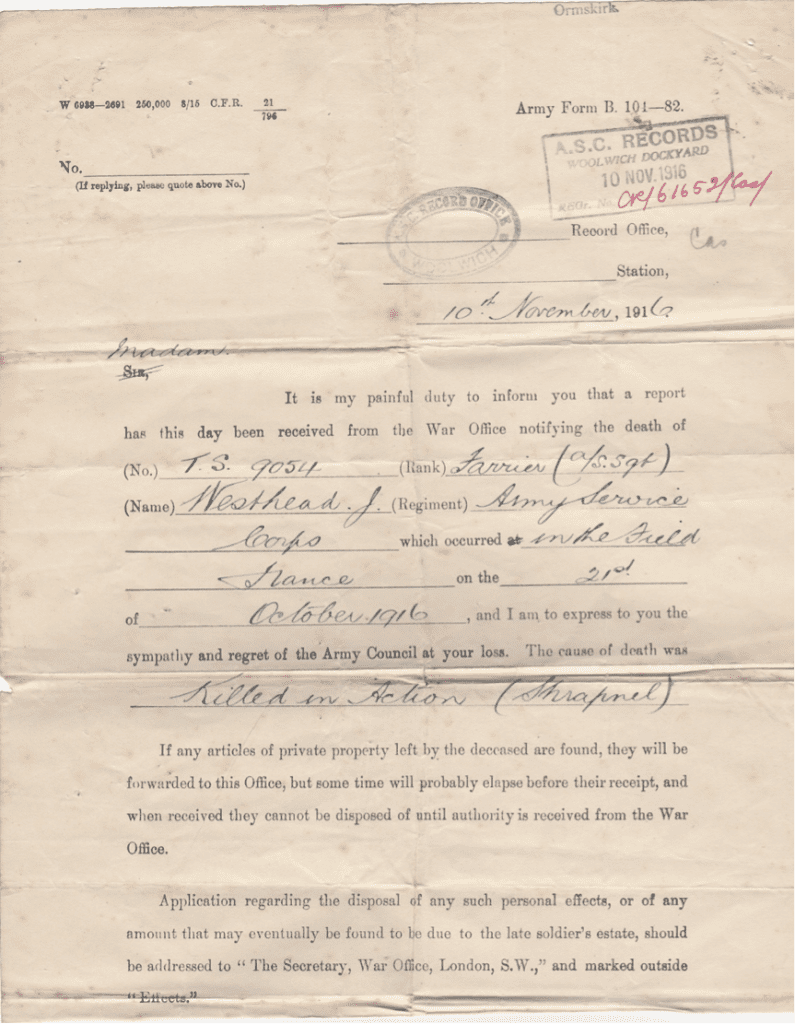 Ormskirk.
W 6938—2691 250,000 8/15 C.F.R. 21/796
Army Form B. 101—82.
A.S.C. RECORDS
WOOLWICH DOCKYARD
10 NOV. 1916
REGr. No. CR/61652/Cas/
No.
(If replying, please quote above No.)
A.S.C RECORD OFFICE
WOOLWICH
Record Office,
Cas
Station,
10th November, 1916
Madam.
Sir,
It is my painful duty to inform you that a report
has this day been received from the War Office notifying the death of
(No.) T.S. 9054 (Rank) Farrier (a/S.Sgt)
(Name) Westhead. J. (Regiment) Army Service
Corps which occurred at in the Field
France on the 21st
of October. 1916, and I am to express to you the
sympathy and regret of the Army Council at your loss. The cause of death was
Killed in Action (Shrapnel)
If any articles of private property left by the deceased are found, they will be
forwarded to this Office, but some time will probably elapse before their receipt, and
when received they cannot be disposed of until authority is received from the War
Office.
Application regarding the disposal of any such personal effects, or of any
amount that may eventually be found to be due to the late soldier's estate, should
be addressed to " The Secretary, War Office, London, S.W.," and marked outside
" Effects."